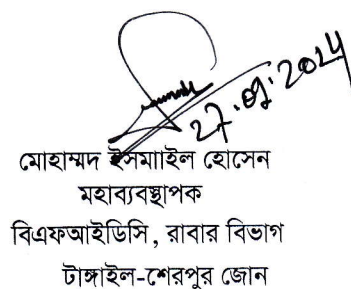 27.09.2024
মোহাম্মদ ইসমাাইল হোসেন
মহাব্যবস্থাপক
বিএফআইডিসি, রাবার বিভাগ
টাঙ্গাইল-শেরপুর জোন